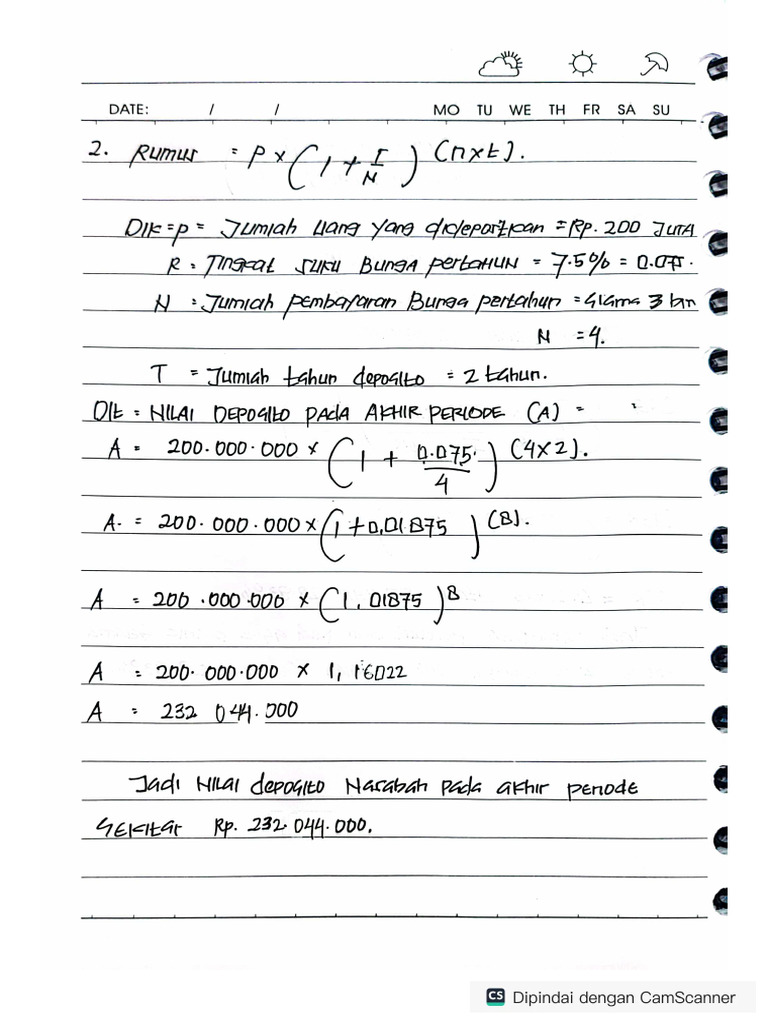 DATE: / / MO TU WE TH FR SA SU
2. Rumus = P x (1 + I/N) (n x t).
Dik = p = Jumlah uang yang dideposit kan = Rp. 200 JUTA
R = Tingkat suku Bunga pertahun = 7.5% = 0.075.
N = Jumlah pembayaran Bunga pertahun = Slama 3 bln
N = 4.
T = Jumlah tahun deposito = 2 tahun.
Dit = NILAI DEPOSITO PADA AKHIR PERIODE (A) =
A = 200.000.000 x (1 + 0.075/4) (4x2).
A. = 200.000.000 x (1 + 0,01875) (8).
A = 200.000.000 x (1,01875)^8
A = 200.000.000 x 1,16022
A = 232 044.000
Jadi Nilai deposito Nasabah pada akhir periode
Sekitar Rp. 232.044.000.
CS Dipindai dengan CamScanner